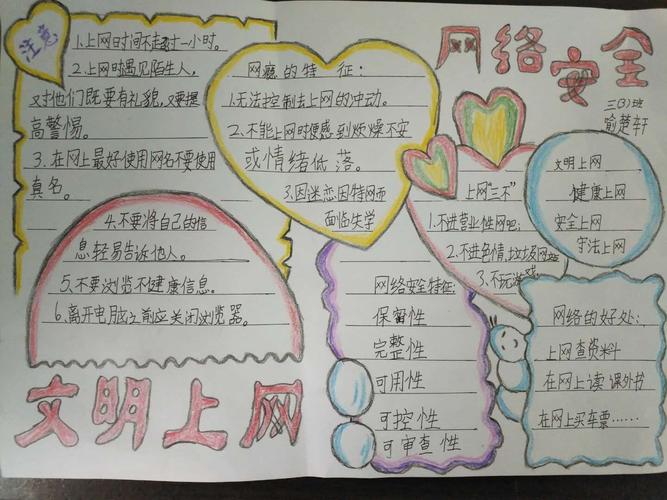 网络安全
三(3)班
喻楚轩
注意
1.上网时间不走过一小时。
2.上网时遇见陌生人,
对他们既要有礼貌,又要提
高警惕。
3.在网上最好使用网名不要使用
真名。
4.不要将自己的信
息轻易告诉他人。
5.不要浏览不健康信息。
6.离开电脑之前应关闭浏览器。
文明上网
网瘾的特征:
1.无法控制去上网的冲动。
2、不能上网时便感到烦燥不安
或情绪低落。
3.因迷恋因特网而
面临失学
上网"三不"
1.不进营业性网吧;
2.不进色情,垃圾网站
3.不玩游戏
文明上网
健康上网
安全上网
守法上网
网络安全特征:
保留性
完整性
可用性
可控性
可审查性
网络的好处:
上网查资料
在网上读课外书
在网上买车票……